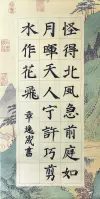 怪得北風急前庭如
月暉天人寧許巧剪
水作花飛
章逸歲書